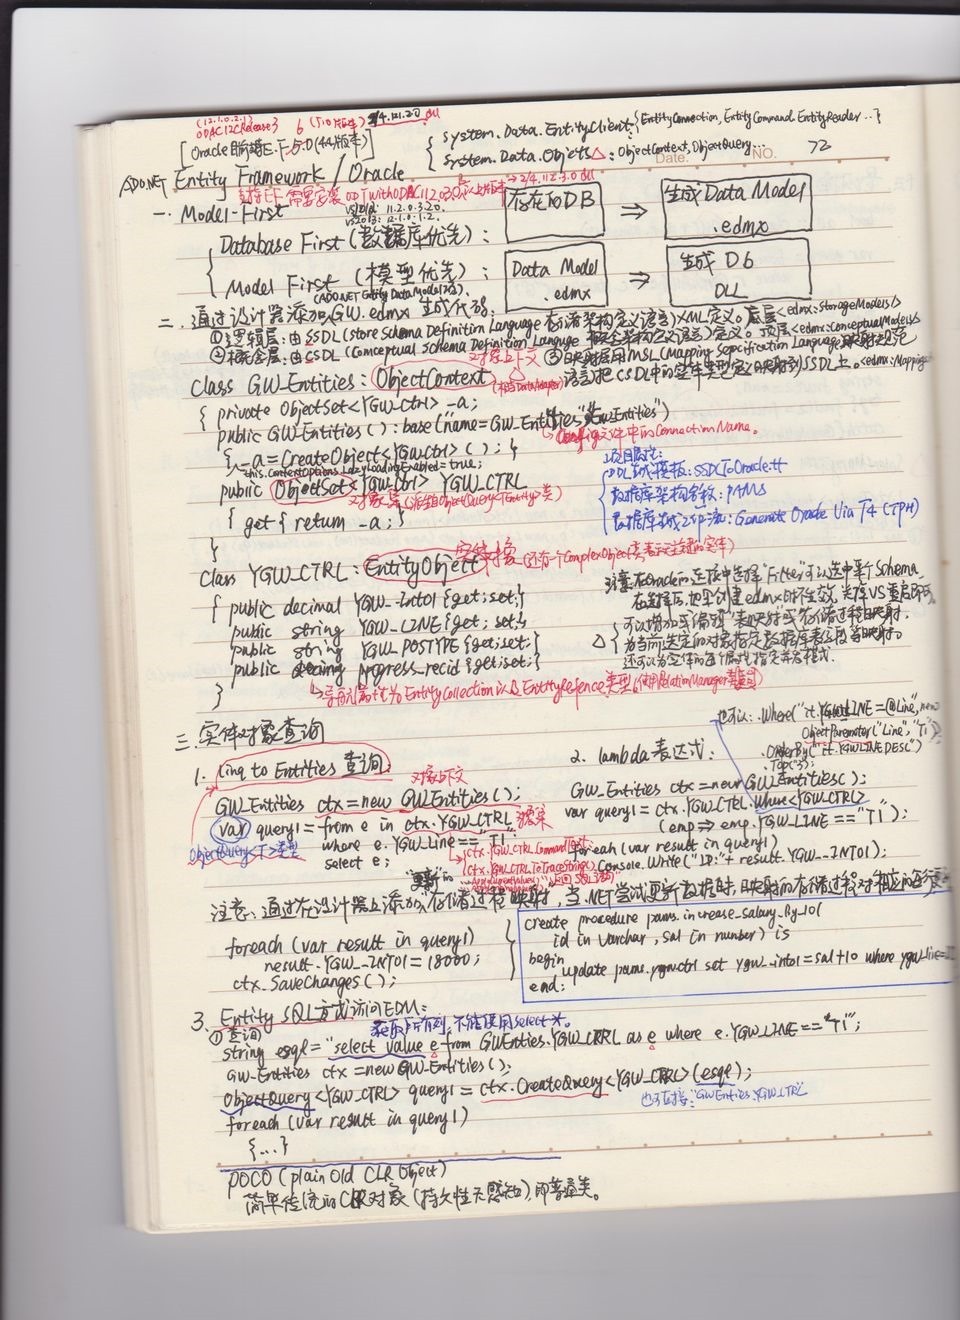 (12.1.0.2.1)
ODAC12CRelease3 6 (5.0版本) 2/4.121.2.0 du
[Oracle目前支持E.F 5.0(4.4版本)]
System.Data.EntityClient: {EntityConnection, EntityCommand, EntityReader...}
System.Data.Objects△: ObjectContext, ObjectQuery...
Date. NO. 72
ADO.NET Entity Framework / Oracle
支持E.F 需要安装 ODTWithODAC112030以上版本 → 2/4.112.3.0 du
一. Model-First
VS2010: 11.2.0.3.20.
VS2013: 12.1.0.1.2.
Database First (数据库优先): 存在的DB ⇒ 生成Data Model .edmx
Model First (模型优先): Data Model .edmx ⇒ 生成 DB DLL
(ADO.NET Entity Data Model 添加)
二. 通过设计器添加GW.edmx 生成代码:
①逻辑层: 由SSDL(Store Schema Definition Language 存储架构定义语言)XML定义。底层<edmx:StorageModels/>
②概念层: 由CSDL(Conceptual Schema Definition Language 概念架构定义语言)定义。顶层<edmx:ConceptualModels/>
对象上下文 ③映射层用MSL(Mapping Specification Language映射规范
语言)把CSDL中的实体类型定义映射到SSDL上。<edmx:Mapping
class GW_Entities : ObjectContext (相当DataAdapter)
{ private ObjectSet<YGW_Ctrl> _a;
public GW_Entities() : base("name=GW_Entities", "GW_Entities")
→ Config文件中的ConnectionName。
{ _a = CreateObject<YGW_Ctrl>(); }
this.ContextOptions.LazyLoadingEnabled = true;
public ObjectSet<YGW_Ctrl> YGW_CTRL
对象集(派生自ObjectQuery<TEntity>类)
{ get { return _a; }
}
项目属性:
DDL生成模板: SSDLToOracle.tt
数据库架构名称: PAMS
数据库生成工作流: Generate Oracle Via T4 (TPH)
实体对象 (还有个ComplexObject 表示无主键的实体)
class YGW_CTRL : EntityObject
{ public decimal YGW__INT01 {get; set;}
public string YGW_LINE {get; set;}
public string YGW_POSTYPE {get; set;}
public decimal progress_recid {get; set;}
}
注意: 在Oracle的连接中选择"Filter"可以选中某个Schema
在选择后, 把如创建edmx时不生效, 关闭VS重启即可。
△ 可以增加或编辑"表映射"或"存储过程"映射。
为当前选定的对象指定数据库表的列等映射。
还可以为实体的每个属性指定并发模式。
→ 导航属性为EntityCollection以及EntityReference类型,使用RelationManager
三. 实体对象查询
1. Linq to Entities 查询:
对象上下文
GW_Entities ctx = new GW_Entities();
var query1 = from e in ctx.YGW_CTRL
where e.YGW_Line == "T1"
select e;
ObjectQuery<T>类型
ctx.YGW_CTRL.CommandText
(ctx.YGW_CTRL.ToTraceString()
2. lambda 表达式:
也可以: .Where("it.YGW_LINE = @Line", new
ObjectParameter("Line", "T1"))
.OrderBy("it.YGW_LINE DESC")
.Top("3");
GW_Entities ctx = new GW_Entities();
var query1 = ctx.YGW_CTRL.Where<YGW_CTRL>
(emp => emp.YGW_LINE == "T1");
foreach (var result in query1)
Console.Write("ID:" + result.YGW__INT01);
"更新"
注意: 通过在设计器上添加"存储过程"映射, 当.NET尝试更新数据时, 映射的存储过程对相应的
foreach (var result in query1)
result.YGW__INT01 = 18000;
ctx.SaveChanges();
create procedure pams.increase_salary_By_10(
id in Varchar, sal in number) is
begin
update pams.ygw_ctrl set ygw__int01 = sal+10 where ygw_line=
end;
3. Entity SQL方式访问EDM:
①查询 获取所有列, 不能使用select *。
string esql = "select value e from GWEntities.YGW_CTRL as e where e.YGW_LINE == "T1";
GW_Entities ctx = new GW_Entities();
ObjectQuery<YGW_CTRL> query1 = ctx.CreateQuery<YGW_CTRL>(esql);
也可直接: "GWEntities.YGW_CTRL"
foreach (var result in query1)
{...}
POCO (plain old CLR Object)
简单传统的CLR对象 (持久性无感知), 即普通类。